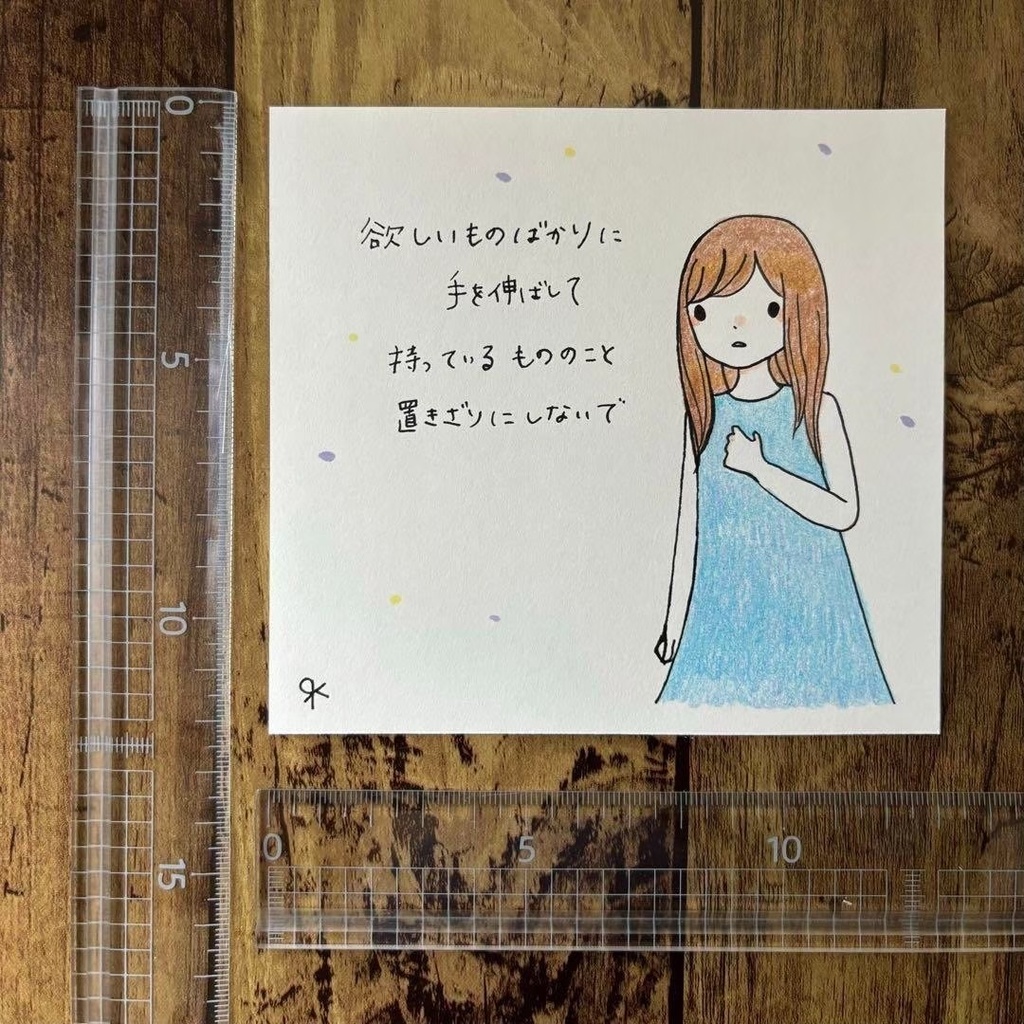 欲しいものばかりに
手を伸ばして
持っている もののこと
置きざりに しないで
0
5
10
15
0
5
10